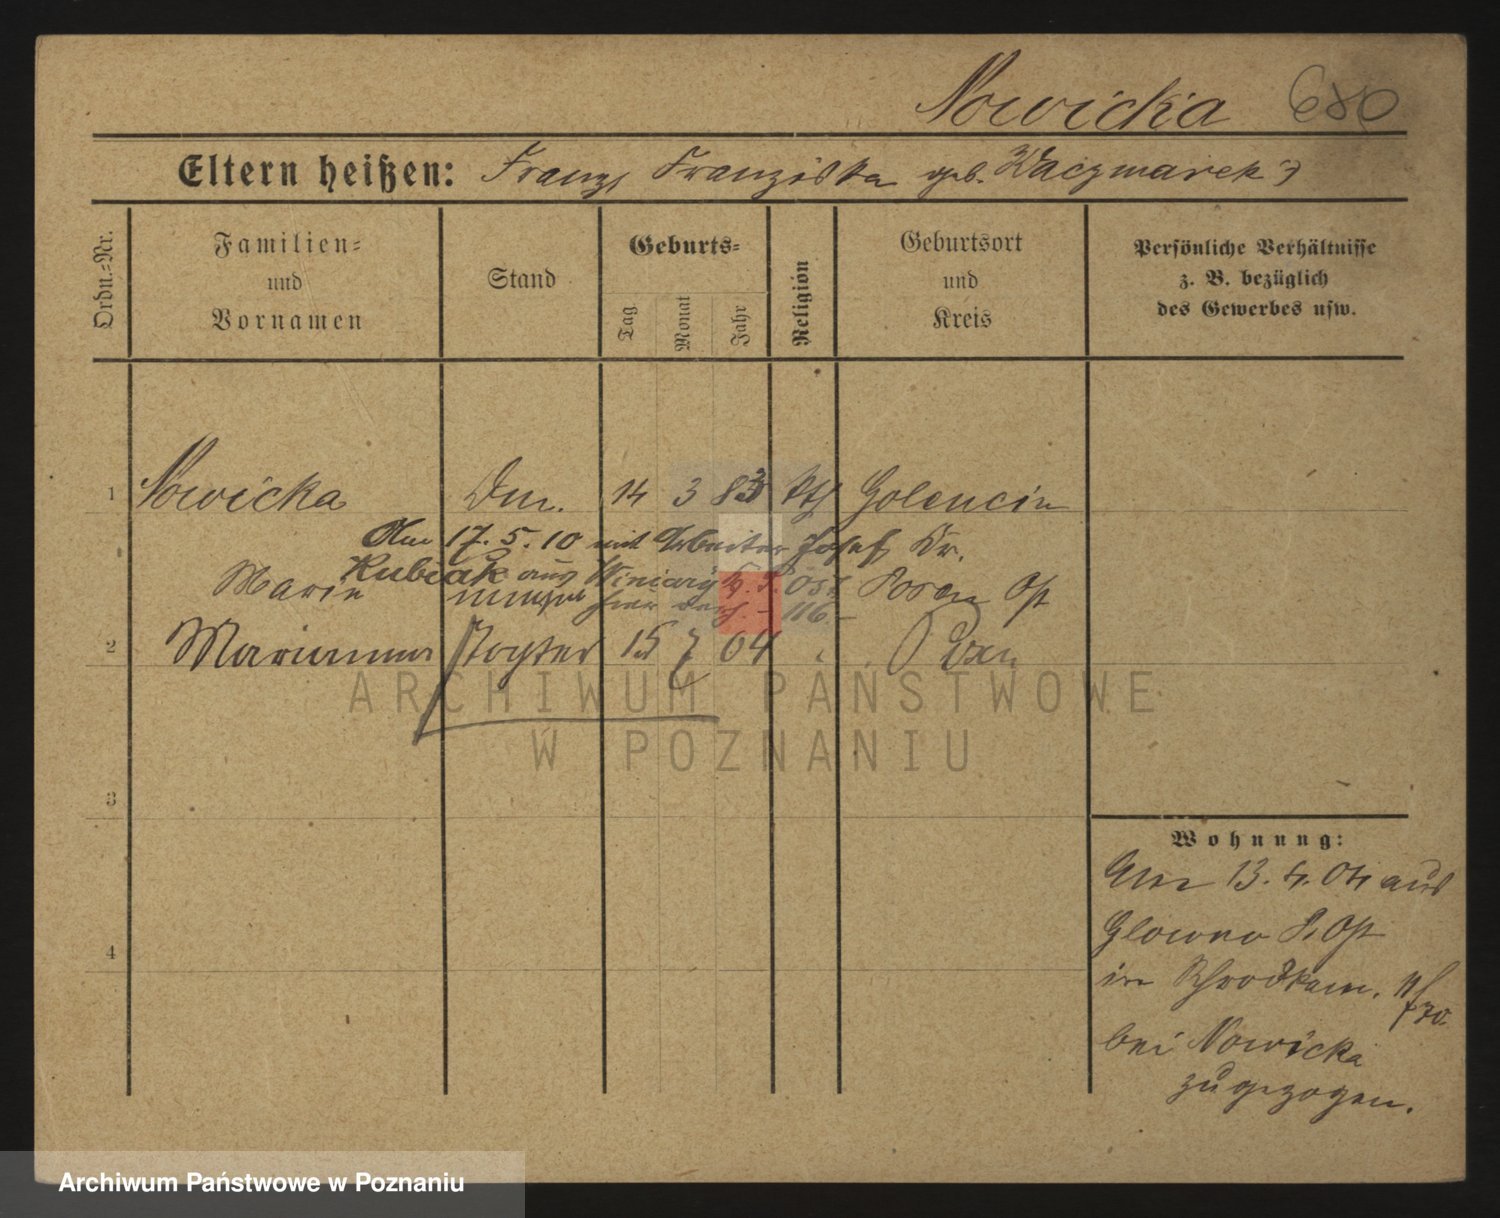 Nowicka 680
Eltern heißen: Franz, Franziska geb. Kaczmarek
Ordn.=Nr.
Familien=
und
Vornamen
Stand
Geburts=
Tag
Monat
Jahr
Religion
Geburtsort
und
Kreis
Persönliche Verhältnisse
z. B. bezüglich
des Gewerbes usw.
1 Nowicka 14 3 83 kth Golencin
Am 17.5.10 mit Arbeiter Josef
Kubiak aus Winiary
Marie Posen Ost
hier 116.
2 Marianna Tochter 15 7 04 Posen
3
4
Wohnung:
Am 13.4.04 aus
Glowno P. Ost
in
bei Nowicka
zugezogen.
ARCHIWUM PAŃSTWOWE
W POZNANIU
Archiwum Państwowe w Poznaniu